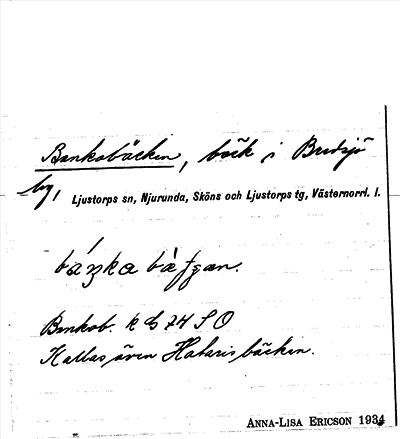 Bankobäcken, bäck i Bredsjö
by,
Ljustorps sn, Njurunda, Sköns och Ljustorps tg, Västernorrl. l.
Bankob. k
Kallas även Hataris bäcken.
ANNA-LISA ERICSON 1934